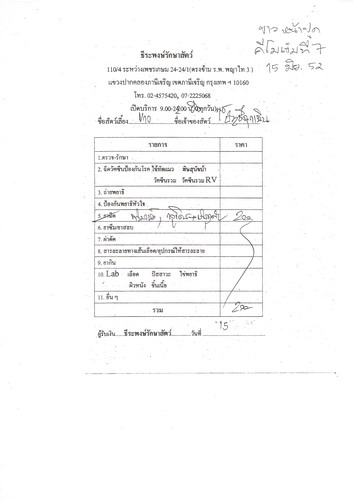 คีโมเข็มที่ 7
15 มิย. 52
ธีระพงษ์รักษาสัตว์
110/4 ระหว่างเพชรเกษม 24-24/1(ตรงข้าม ร.พ. พญาไท 3 )
แขวงปากคลองภาษีเจริญ เขตภาษีเจริญ กรุงเทพ ฯ 10160
โทร. 02-4575420, 07-2225068
เปิดบริการ 9.00-24.00 น. ทุกวัน
ชื่อสัตว์เลี้ยง ชื่อเจ้าของสัตว์
รายการ ราคา
1.ตรวจ-รักษา
2. ฉีดวัคซีนป้องกันโรค ไข้หัดแมว พิษสุนัขบ้า
วัคซีนรวม วัคซีนรวม RV
3. ถ่ายพยาธิ
4. ป้องกันพยาธิหัวใจ
5. ยาฉีด 200
6. ยาซึม/ยาสลบ
7. ผ่าตัด
8. สารละลายทางเส้นเลือด/อุปกรณ์ให้สารละลาย
9. ยากิน
10. Lab เลือด ปัสสาวะ ไข่พยาธิ
ผิวหนัง ชิ้นเนื้อ
11. อื่น ๆ
รวม 200
ผู้รับเงิน ธีระพงษ์รักษาสัตว์ วันที่ 15